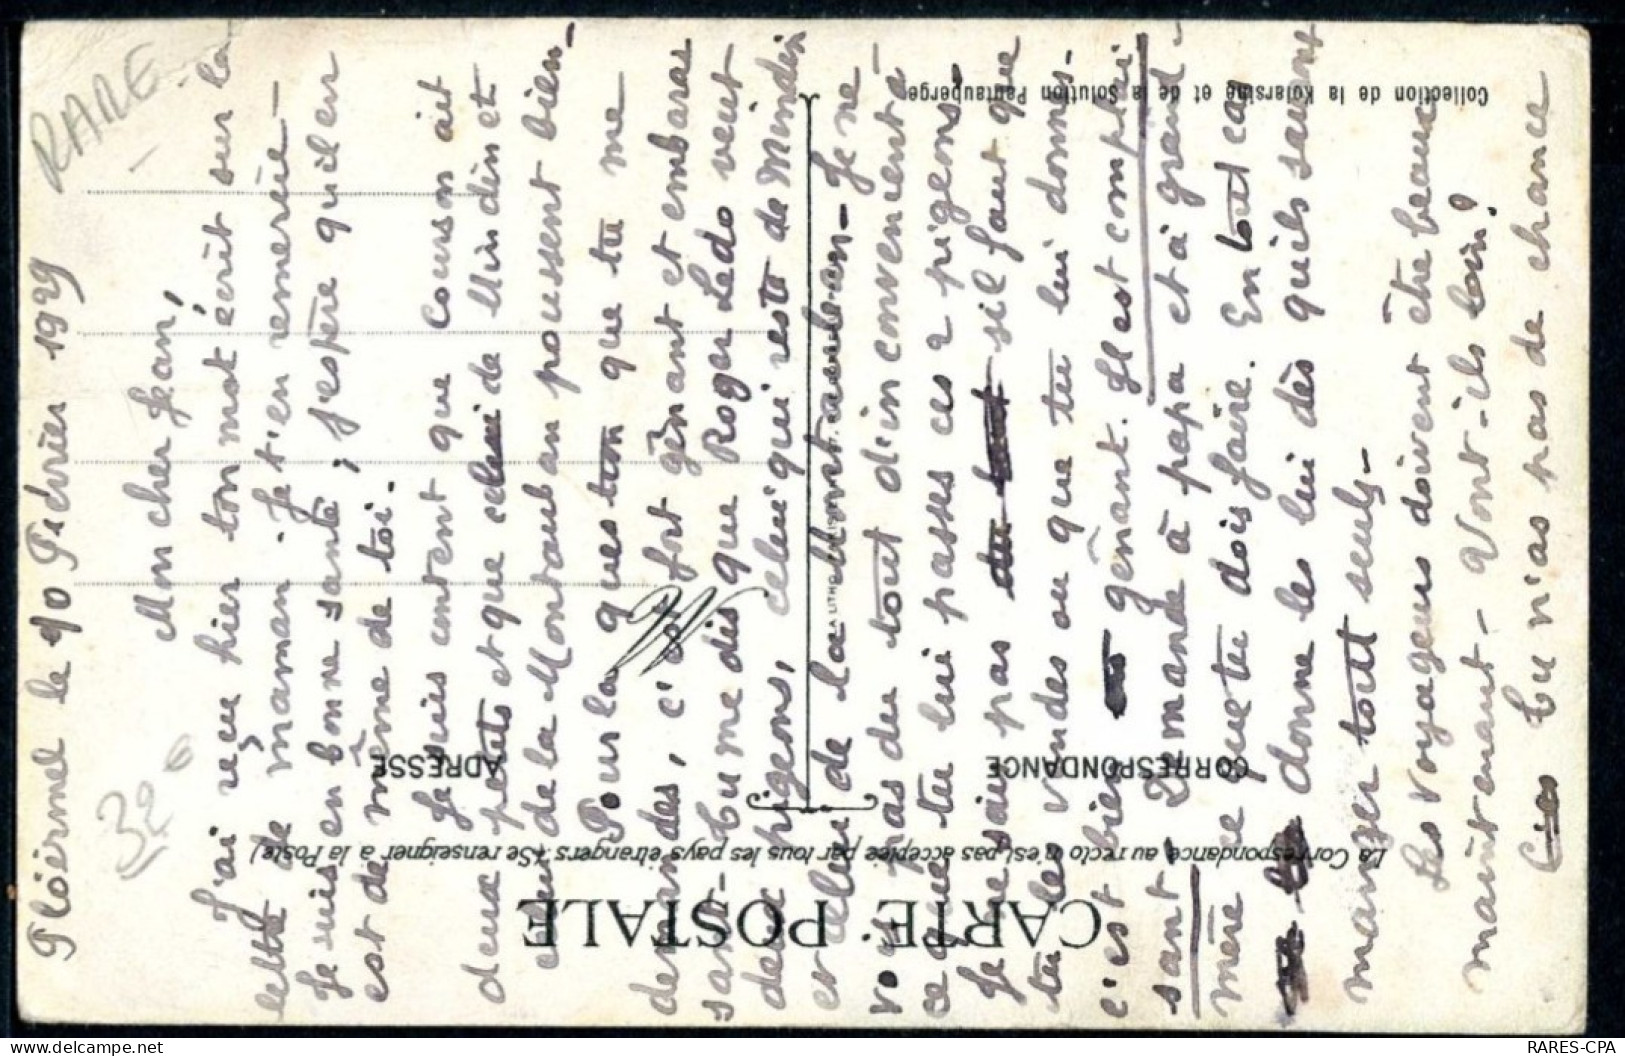 Ploërmel le 10 Février 1929
Mon cher Jean,
J'ai reçu hier ton mot écrit sur la
lettre de maman. Je t'en remercie –
Je suis en bonne santé ; j'espère qu'il en
est de même de toi.
Je suis content que Courson ait
deux petits et que celui de Mindin et
celui de la Montauban poussent bien –
Pour la question que tu me
demandes, c'est fort gênant et embaras
sant – Tu me dis que Roger Ledo veut
deux pigeons, celui qui reste de Mindin
et celui de la Montauban – Je ne
vois pas du tout d'inconvénient à
ce que tu lui passes ces 2 pigeons.
Je ne sais pas s'il faut que
tu les vendes ou que tu lui donnes –
c'est bien gênant. Il est complai-
sant – Demande à papa et à grand-
mère ce que tu dois faire. En tout cas
donne les lui dès qu'ils sauront
manger tout seuls –
Les voyageurs doivent être beaux
maintenant – Vont-ils loin ?
Tu n'as pas de chance
CARTE POSTALE
La Correspondance au recto n'est pas acceptée par tous les pays étrangers (Se renseigner à la Poste)
CORRESPONDANCE
ADRESSE
Collection de la Kolarsine et de la Solution Pautauberge
RARE
32
RARES-CPA